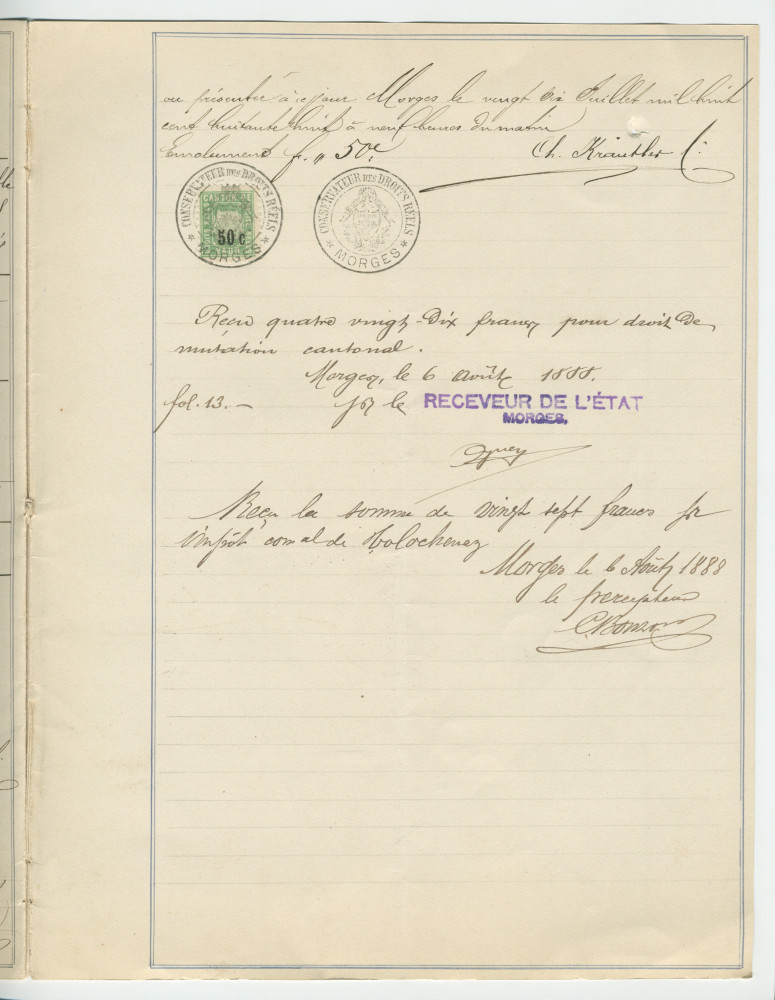 ou présenté à ce jour Morges le vingt six Juillet mil huit
cent huitante huit à neuf heures du matin
Emolument f. " 50c. Ch. Krautler
CONSERVATEUR DES DROITS RÉELS
50 c
MORGES
CONSERVATEUR DES DROITS RÉELS
MORGES
Reçu quatre vingt-dix francs pour droit de
mutation cantonal.
Morges, le 6 Août 1888.
fol. 13.- pr le RECEVEUR DE L'ÉTAT
MORGES,
Reçu la somme de vingt sept francs pr
l'impôt comal de Tolochenaz
Morges le 6 Août 1888
le percepteur